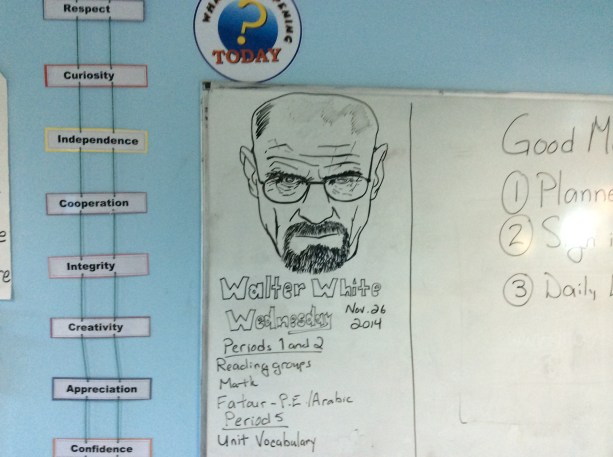 Respect
Curiosity
Independence
Cooperation
Integrity
Creativity
Appreciation
Confidence
TODAY
Walter White
Wednesday
Nov. 26
2014
Periods 1 and 2
Reading groups
Math
Fatour - P.E /Arabic
Period 5
Unit Vocabulary
Good M
1 Planne
2 Sign i
3 Daily
e
re